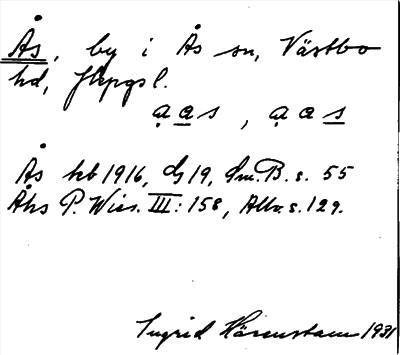 Ås, by i Ås sn, Västbo
hd, Jkpgs l.
a̤a̲s , a̤as̲
Ås kb 1916, G 19, Sm. B. s. 55
Åhs P. Wies. III: 158, Allv. s. 129.
Ingrid Härenstam 1931